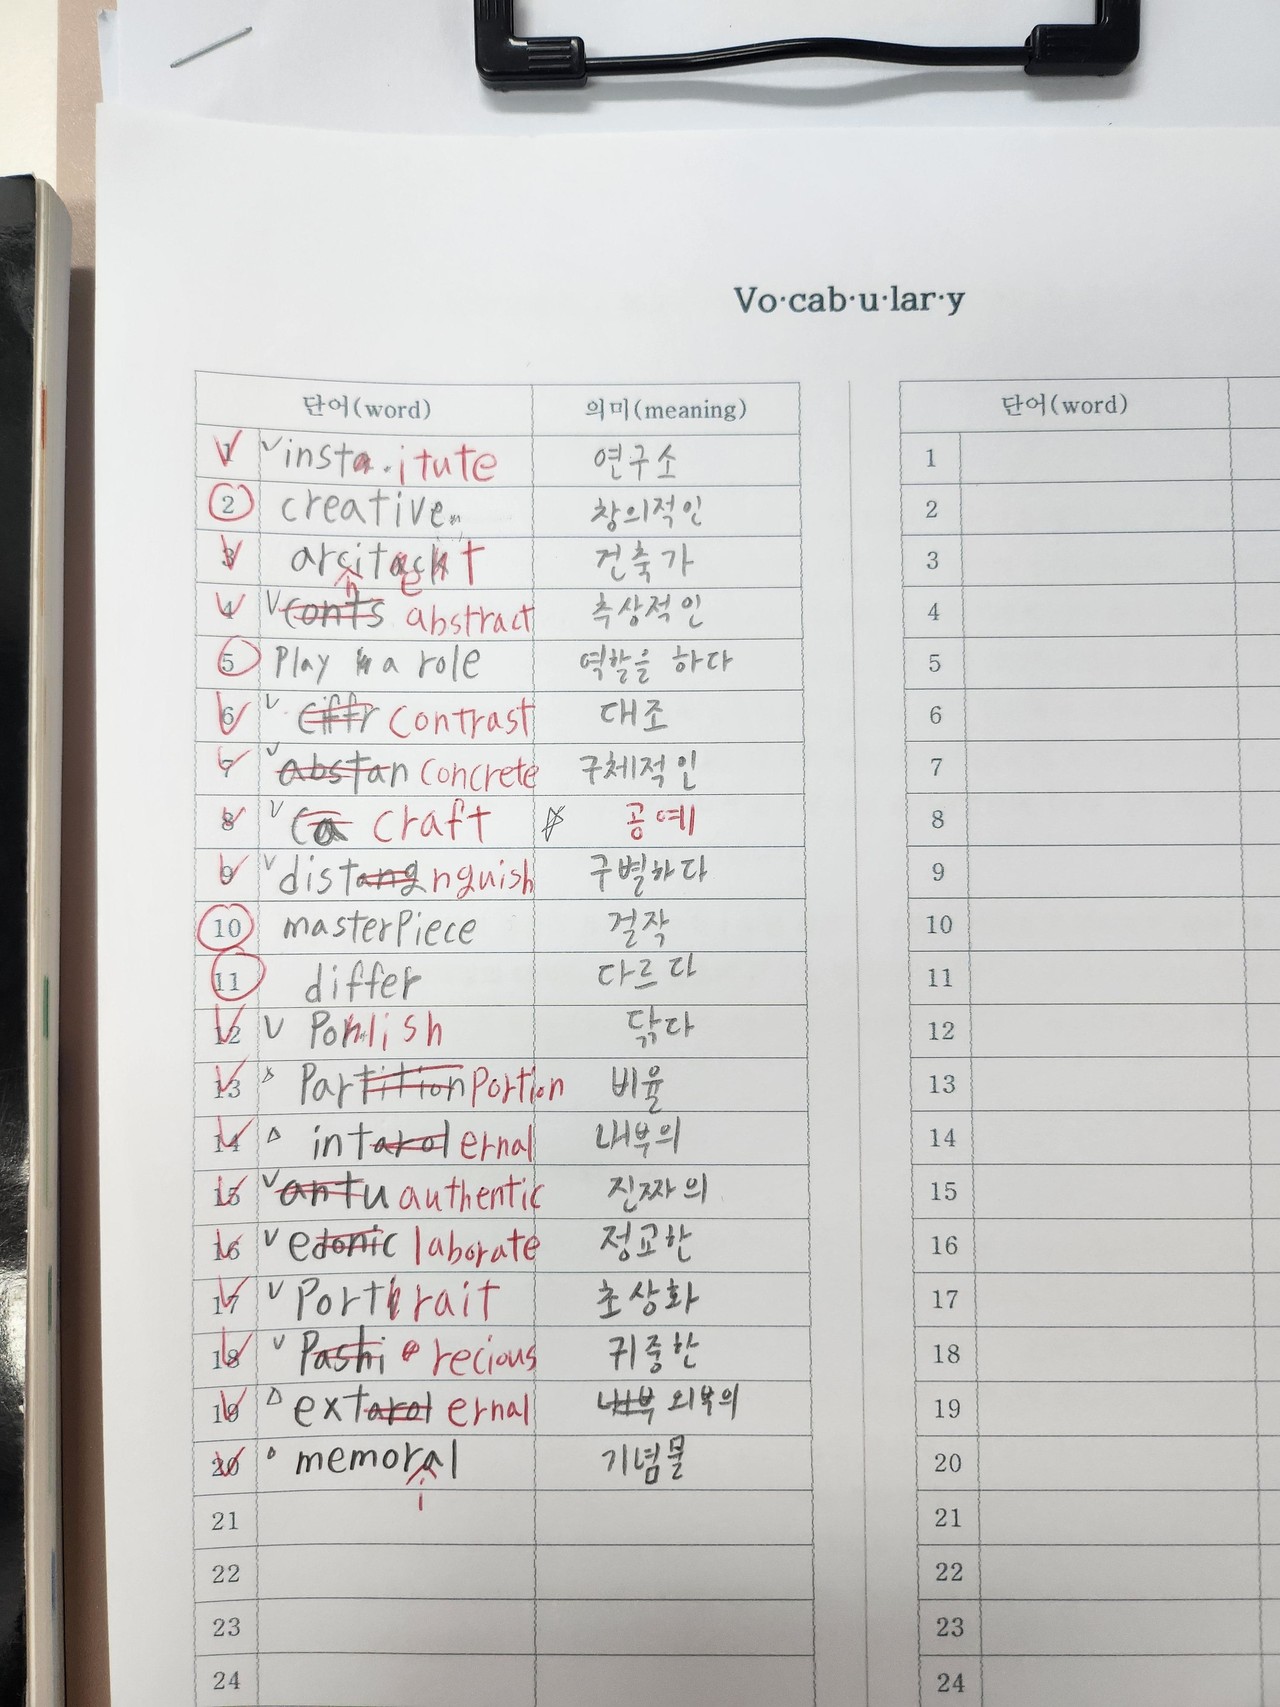 Vo·cab·u·lar·y
단어(word) 의미(meaning) 단어(word)
1 institute 연구소 1
2 creative 창의적인 2
3 architect 건축가 3
4 conts abstract 추상적인 4
5 Play a role 역할을 하다 5
6 ciffr contrast 대조 6
7 abstan concrete 구체적인 7
8 ca craft 공예 8
9 distang nguish 구별하다 9
10 masterPiece 걸작 10
11 differ 다르다 11
12 Polish 닦다 12
13 Partition portion 비율 13
14 intarol ernal 내부의 14
15 antu authentic 진짜의 15
16 edonic laborate 정교한 16
17 Portrait 초상화 17
18 Pashi recious 귀중한 18
19 extarol ernal 내부 외부의 19
20 memoral i 기념물 20
21 21
22 22
23 23
24 24